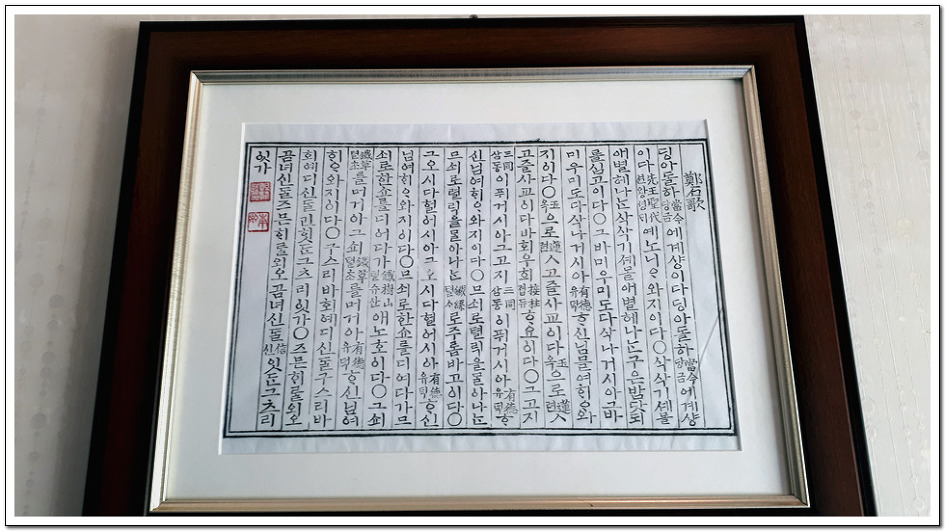 鄭石歌
딩아돌하當今당금에계샹이다딩아돌하當今당금에계샹
이다先王聖代션왕셩ᄃᆡ예노니ᄋᆞ와지이다○삭삭기셰몰
애별헤나ᄂᆞᆫ삭삭기셰몰애별헤나ᄂᆞᆫ구은밤닷되
를심고이다○그바미우미도다삭나거시아그바
미우미도다삭나거시아有德유덕ᄒᆞ신님믈여ᄒᆡᄋᆞ와
지이다○玉옥으로蓮련ㅅ고즐사교이다玉옥으로蓮련ㅅ
고즐사교이다바회우희接柱졉듀ᄒᆞ요이다○그고지
三同삼동이퓌거시아그고지三同삼동이퓌거시아有德유덕ᄒᆞ
신님여ᄒᆡᄋᆞ와지이다○므쇠로텰릭을몰아나ᄂᆞᆫ
므쇠로텰링을몰아나ᄂᆞᆫ鐵絲텰ᄉᆞ로주롬바고이다○
그오시다헐어시아그오시다헐어시아有德유덕ᄒᆞ신
님여ᄒᆡᄋᆞ와지이다○므쇠로한쇼를디여다가므
쇠로한쇼를디여다가鐵樹山텰슈산애노호이다○그쇠
鐵草텰초를머거아그쇠鐵草텰초를머거아有德유덕ᄒᆞ신님여
ᄒᆡᄋᆞ와지이다○구스리바회예디신ᄃᆞᆯ구스리바
회예디신ᄃᆞᆯ긴힛ᄃᆞᆫ그츠리잇가○즈믄ᄒᆡᄅᆞᆯ외오
곰녀신ᄃᆞᆯ즈믄ᄒᆡᄅᆞᆯ외오곰녀신ᄃᆞᆯ信신잇ᄃᆞᆫ그츠리
잇가